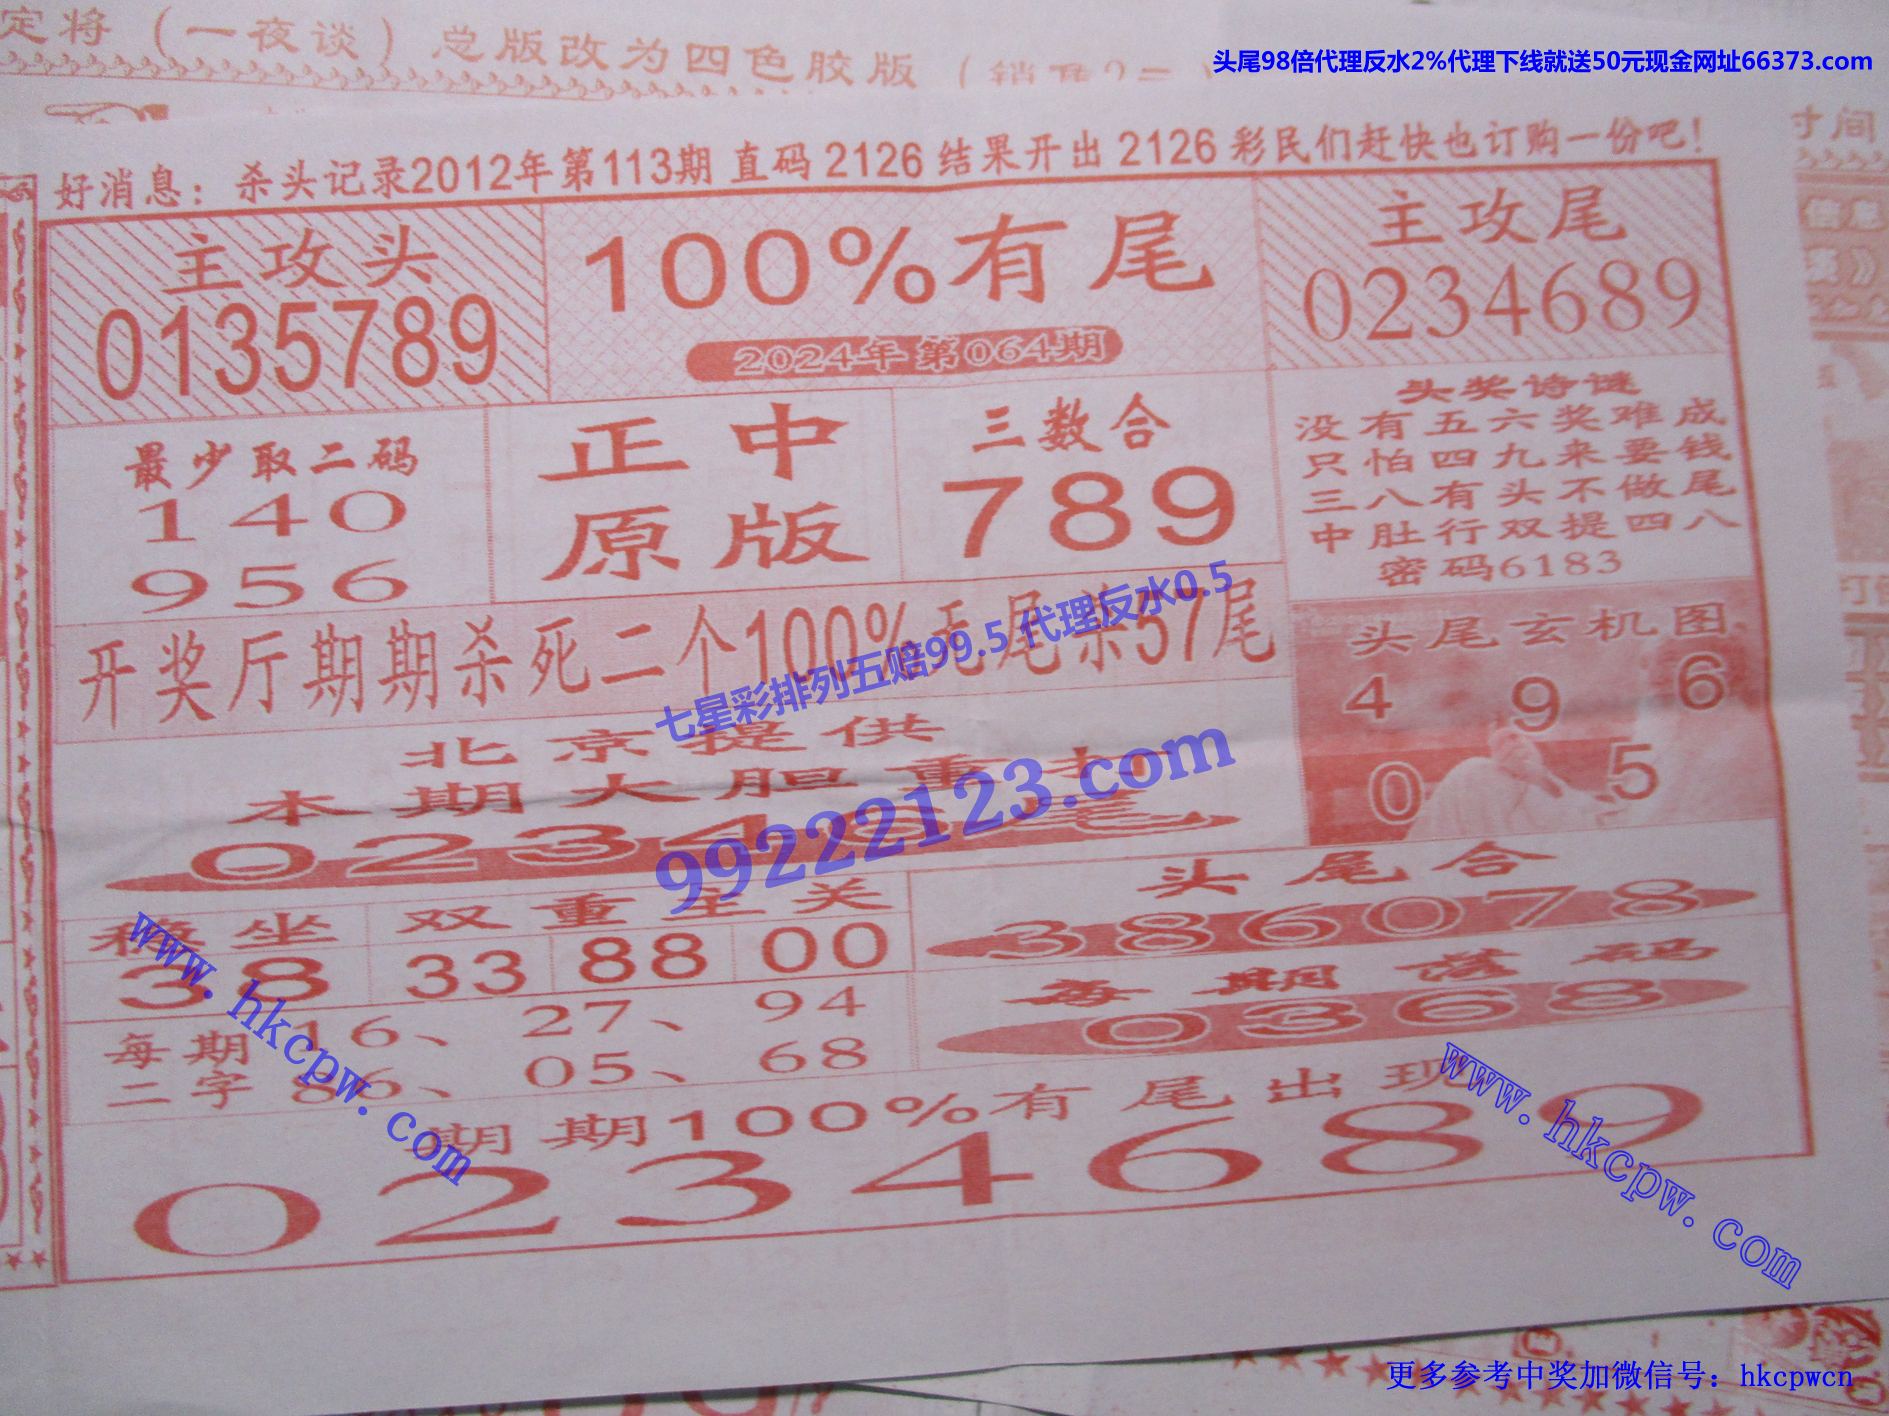 定将（一夜谈）总版改为四色胶版（
头尾98倍代理反水2%代理下线就送50元现金网址66373.com
好消息：杀头记录2012年第113期 直码 2126 结果开出 2126 彩民们赶快也订购一份吧！
寸间
主攻头
0135789
100%有尾
2024年第064期
主攻尾
0234689
最少取二码
140
956
正中
原版
三数合
789
头奖诗谜
没有五六奖难成
只怕四九来要钱
三八有头不做尾
中肚行双提四八
密码6183
开奖厅期期杀死二个100%无尾杀57尾
七星彩排列五赔99.5 代理反水0.5
99222123.com
头尾玄机图
4 9 6
0 5
北京提供
本期大胆重打
0234 尾
稳坐
38
双重生关
33 88 00
头尾合
386078
每期
二字
16、27、94
86、05、68
每期落码
0368
期期100%有尾出现
0234689
www.hkcpw.com
www.hkcpw.com
更多参考中奖加微信号：hkcpwcn